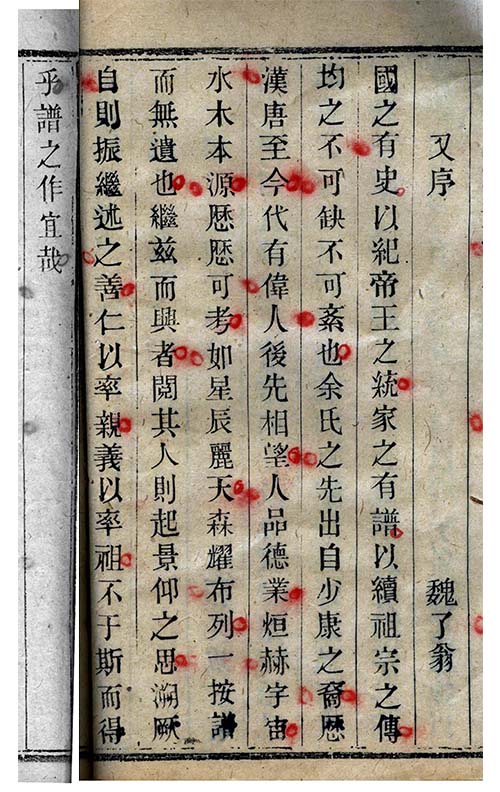 又序 魏了翁
國之有史以紀帝王之統家之有譜以續祖宗之傳
均之不可缺不可紊也余氏之先出自少康之裔歷
漢唐至今代有偉人後先相望人品德業烜赫宇宙
水木本源歷歷可考如星辰麗天森耀布列一按譜
而無遺也繼兹而興者閱其人則起景仰之思溯厥
自則振繼述之善仁以率親義以率祖不于斯而得
乎譜之作宜哉